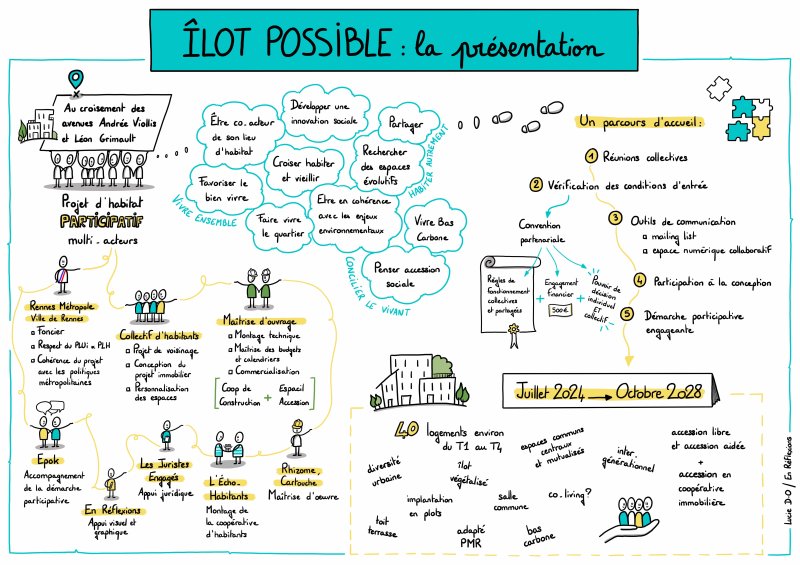 ÎLOT POSSIBLE : la présentation
Au croisement des
avenues Andrée Viollis
et Léon Grimault
Projet d'habitat
PARTICIPATIF
multi-acteurs
Être co.acteur
de son lieu
d'habitat
Développer une
innovation sociale
Partager
Croiser habiter
et vieillir
Rechercher
des espaces
évolutifs
Favoriser le
bien vivre
Faire vivre
le quartier
Etre en cohérence
avec les enjeux
environnementaux
Vivre Bas
Carbone
Penser accession
sociale
VIVRE ENSEMBLE
HABITER AUTREMENT
CONCILIER LE VIVANT
Un parcours d'accueil :
1 Réunions collectives
2 Vérification des conditions d'entrée
Convention
partenariale
Règles de
fonctionnement
collectives
et partagées
+
Engagement
financier
500€
+
Pouvoir de
décision
individuel
ET
collectif
3 Outils de communication
mailing list
espace numérique collaboratif
4 Participation à la conception
5 Démarche participative
engageante
Rennes Métropole
Ville de Rennes
Foncier
Respect du PLUi & PLH
Cohérence du projet
avec les politiques
métropolitaines
Collectif d'habitants
Projet de voisinage
Conception du
projet immobilier
Personnalisation
des espaces
Maîtrise d'ouvrage
Montage technique
Maîtrise des budgets
et calendriers
Commercialisation
Coop de
Construction
+
Espacil
Accession
Epok
Accompagnement
de la démarche
participative
En Réflexions
Appui visuel et
graphique
Les Juristes
Engagés
Appui juridique
L'Écho-
Habitants
Montage de
la coopérative
d'habitants
Rhizome,
Cartouche
Maîtrise d'œuvre
Juillet 2024 → Octobre 2028
40 logements environ
du T1 au T4
diversité
urbaine
îlot
végétalisé
espaces communs
centraux
et mutualisés
inter.
générationnel
accession libre
et accession aidée
+
accession en
coopérative
immobilière
implantation
en plots
salle
commune
co.living?
toit
terrasse
adapté
PMR
bas
carbone
Lucie D-O / En Réflexions